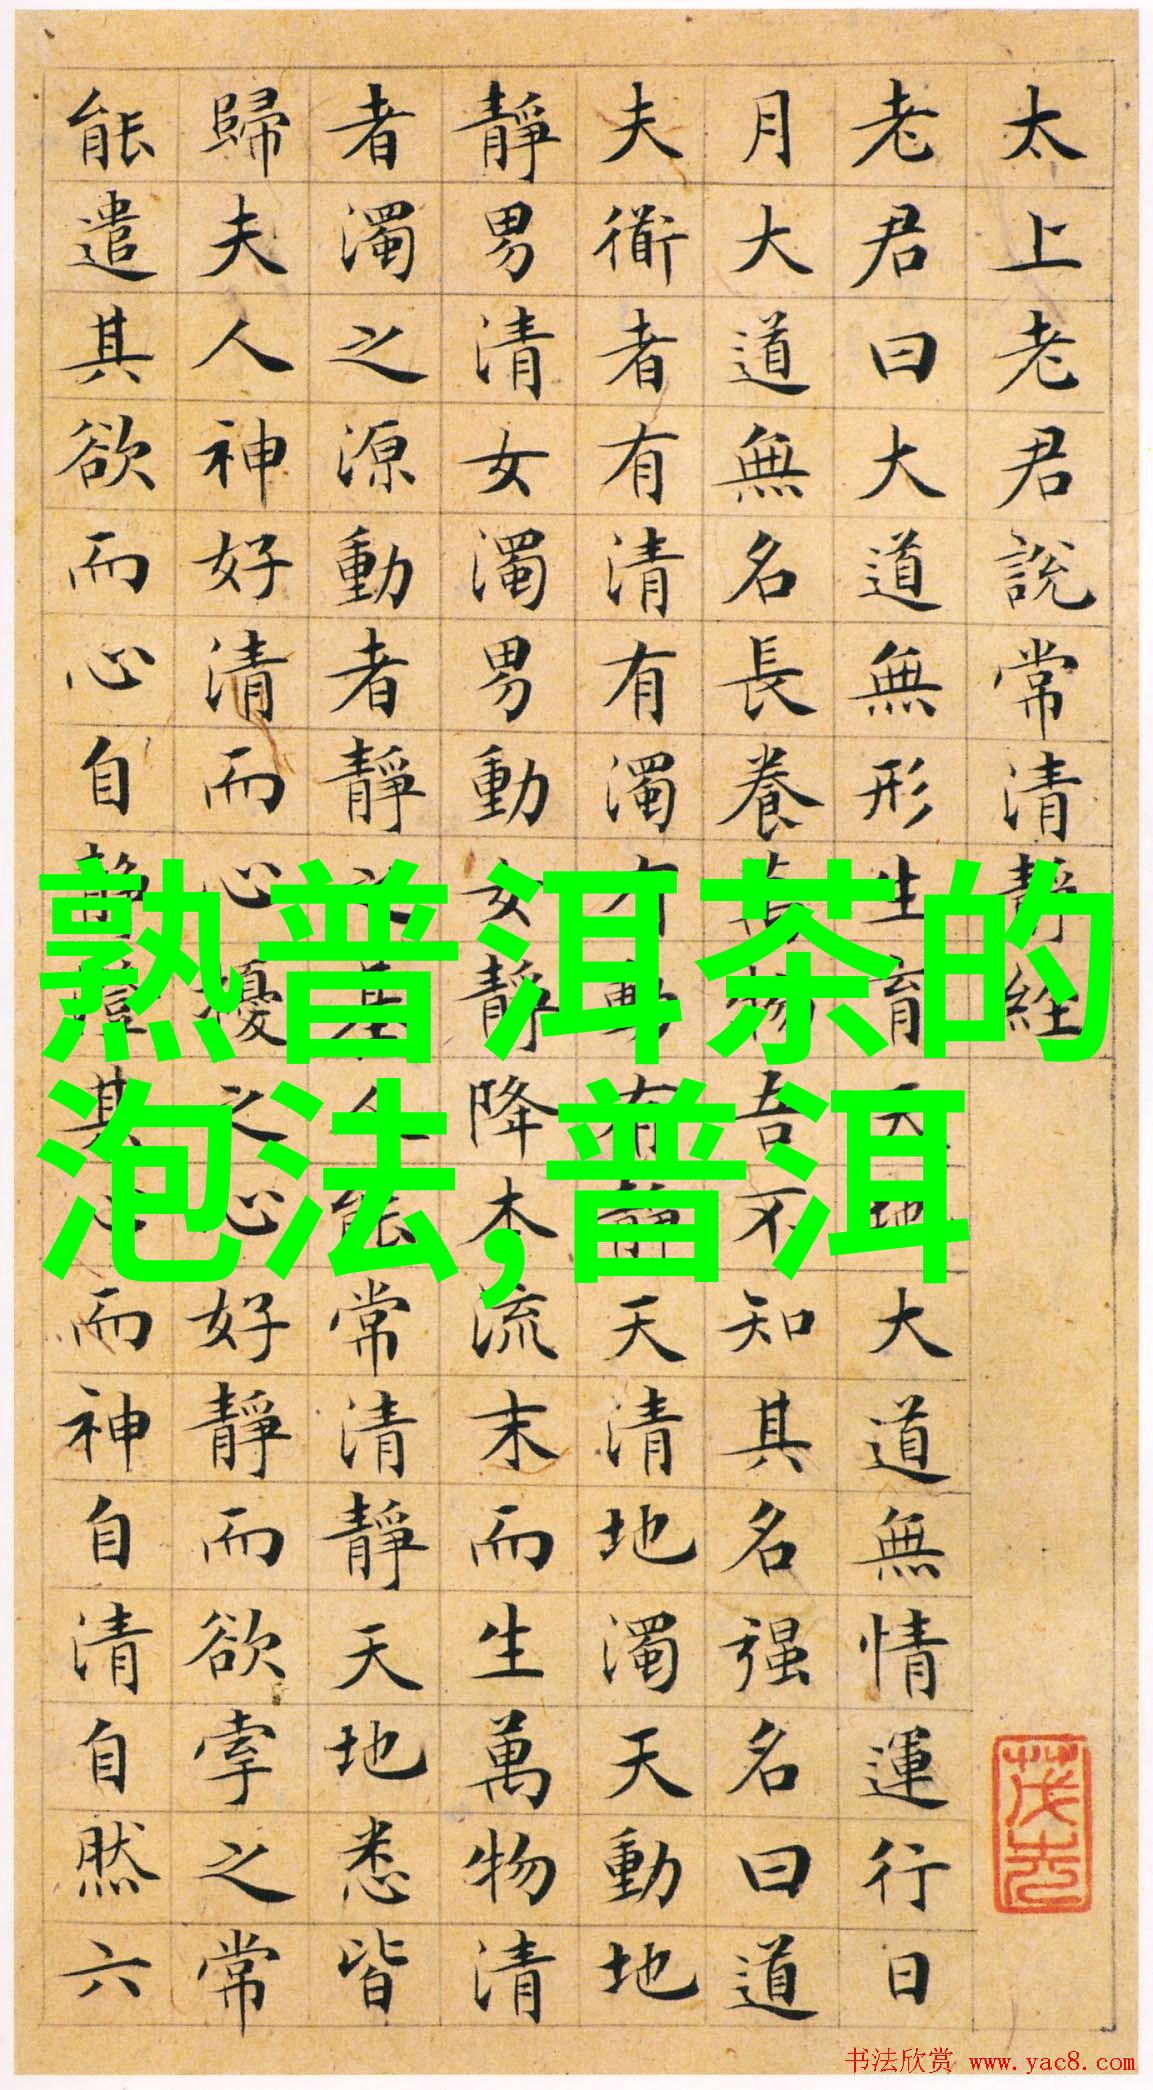 太上老君說常清靜經
老君曰大道無形生育天地大道無情運行日
月大道無名長養萬物吾不知其名强名曰道
夫衜者有清有濁有動有靜天清地濁天動地
靜男清女濁男動女靜降本流末而生萬物清
者濁之源動者靜之基人能常清靜天地悉皆
歸夫人神好清而心擾之心好靜而欲牽之常
能遣其欲而心自靜澄其心而神自清自然六
熟普洱茶的
泡法,普洱
书法欣赏 www.yac8.com